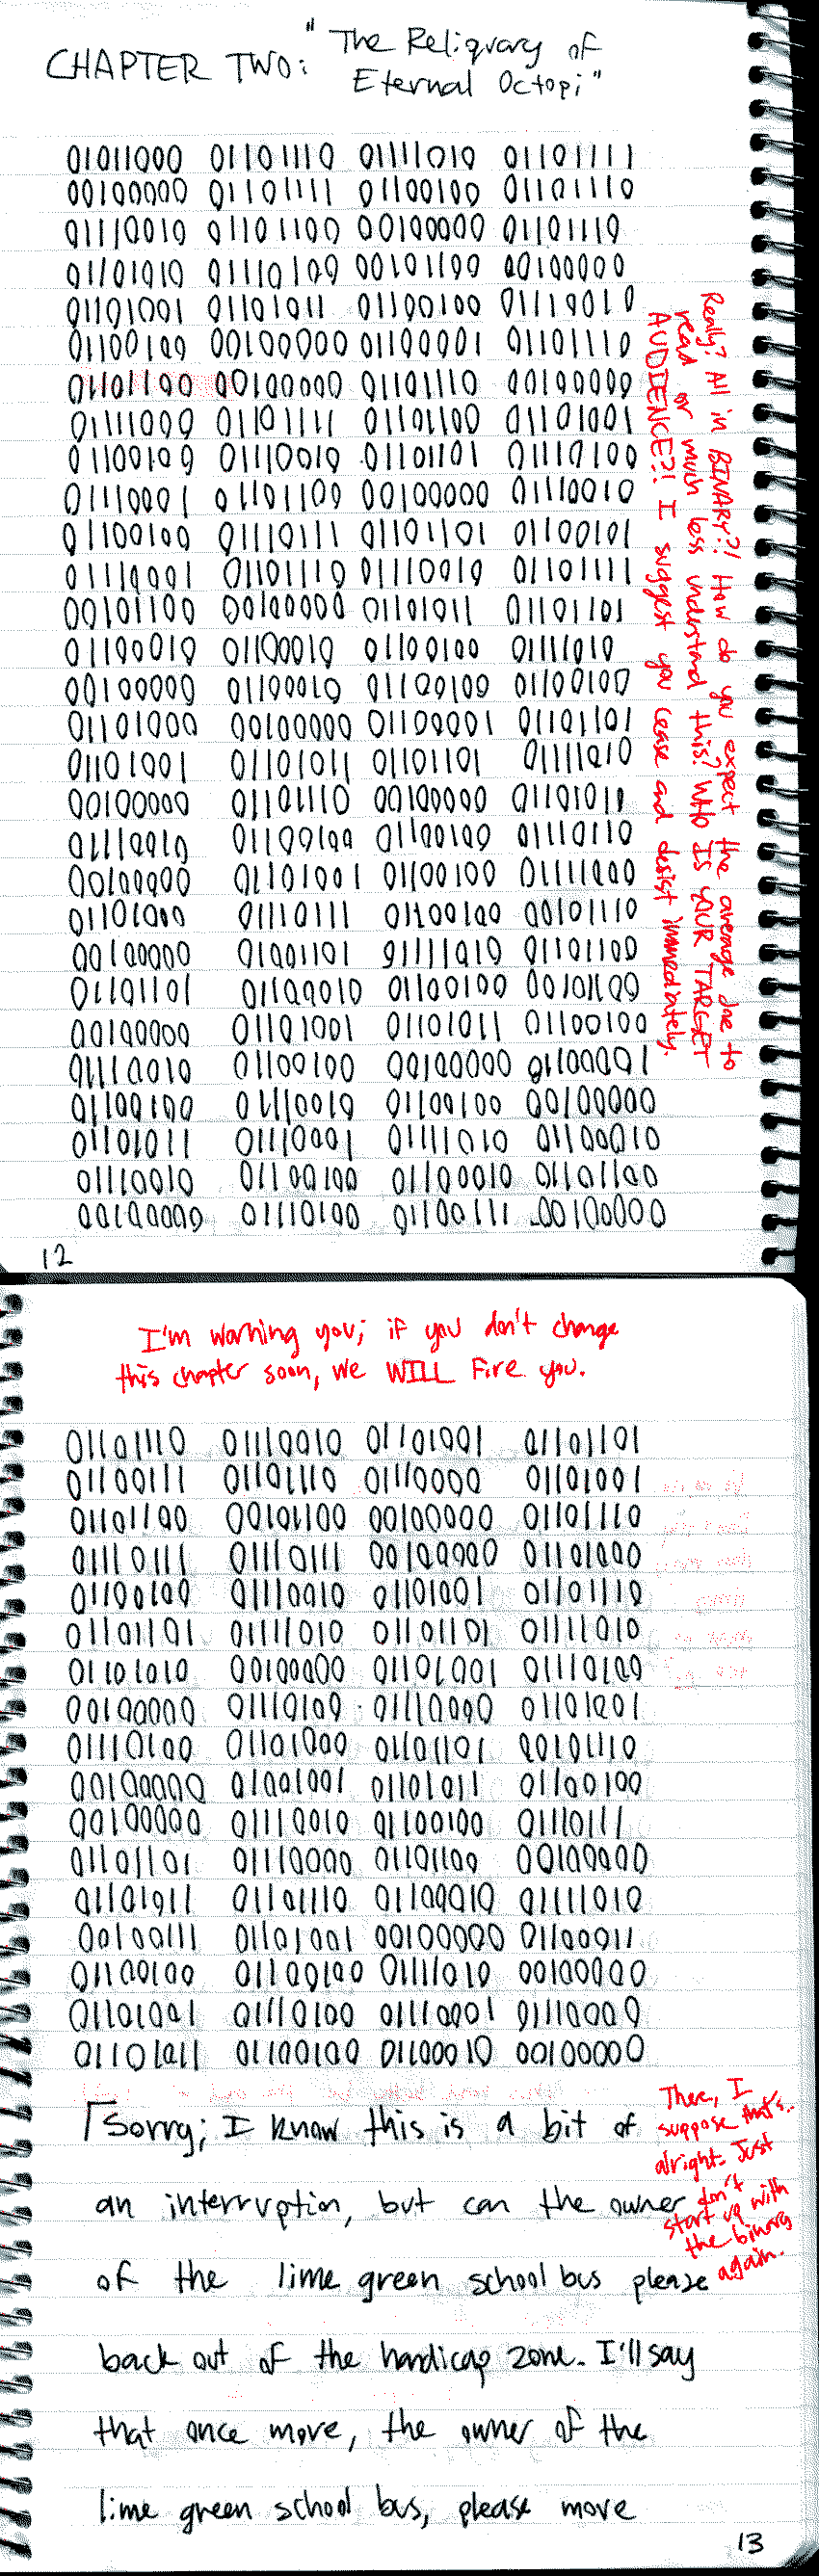 CHAPTER TWO: "The Reliquary of
Eternal Octopi"
01011000 01101110 01111010 01101111
00100000 01101111 01100100 01101110
01110010 01101100 00100000 01101110
01101010 01110100 00101100 00100000
01101001 01101011 01100100 01110010
01100100 00100000 01100001 01101110
01101100 00100000 01101110 00100000
01111000 01101111 01101100 01101001
01100100 01110010 01101101 01110100
01110001 01101100 00100000 01110010
01100100 01110111 01101101 01100101
01110001 01101110 01110010 01101111
00101100 00100000 01101011 01101101
01100010 01100010 01100100 01111010
00100000 01100010 01100100 01100100
01101000 00100000 01100001 01101101
01101001 01101011 01101101 01111010
00100000 01101110 00100000 01101011
01110010 01100100 01100100 01110110
00100000 01101001 01100100 01111000
01101000 01110111 01100100 00101110
00100000 01001101 01111010 01101100
01101101 01100010 01100100 00101100
00100000 01101001 01101011 01100100
01110010 01100100 00100000 01100001
01100100 01110010 01100100 00100000
01101011 01110001 01111010 01100010
01110010 01100100 01100010 01101100
00100000 01110100 01100111 00100000
12
Really? All in BINARY?! How do you expect the average joe to
read or much less understand this? WHO IS YOUR TARGET
AUDIENCE?! I suggest you cease and desist immediately.
I'm warning you; if you don't change
this chapter soon, we WILL Fire you.
01101110 01110010 01101001 01101101
01100111 01101110 01110000 01101001
01101100 00101100 00100000 01101110
01110111 01110111 00100000 01101000
01100100 01110010 01101001 01101110
01101101 01111010 01101101 01111010
01101010 00100000 01101001 01110100
00100000 01110100 01110000 01101001
01110100 01101000 01101101 00101110
00100000 01001001 01101011 01100100
00100000 01110010 01100100 01110111
01101101 01110000 01101100 00100000
01101011 01101110 01100010 01111010
00100111 01101001 00100000 01100011
01100100 01100100 01111010 00100000
01101001 01110100 01110001 01110000
01101011 01100100 01100010 00100000
Sorry; I know this is a bit of
an interruption, but can the owner
of the lime green school bus please
back out of the handicap zone. I'll say
that once more, the owner of the
lime green school bus, please move
There, I
suppose that's..
alright. Just
don't
start up with
the binary
again.
13